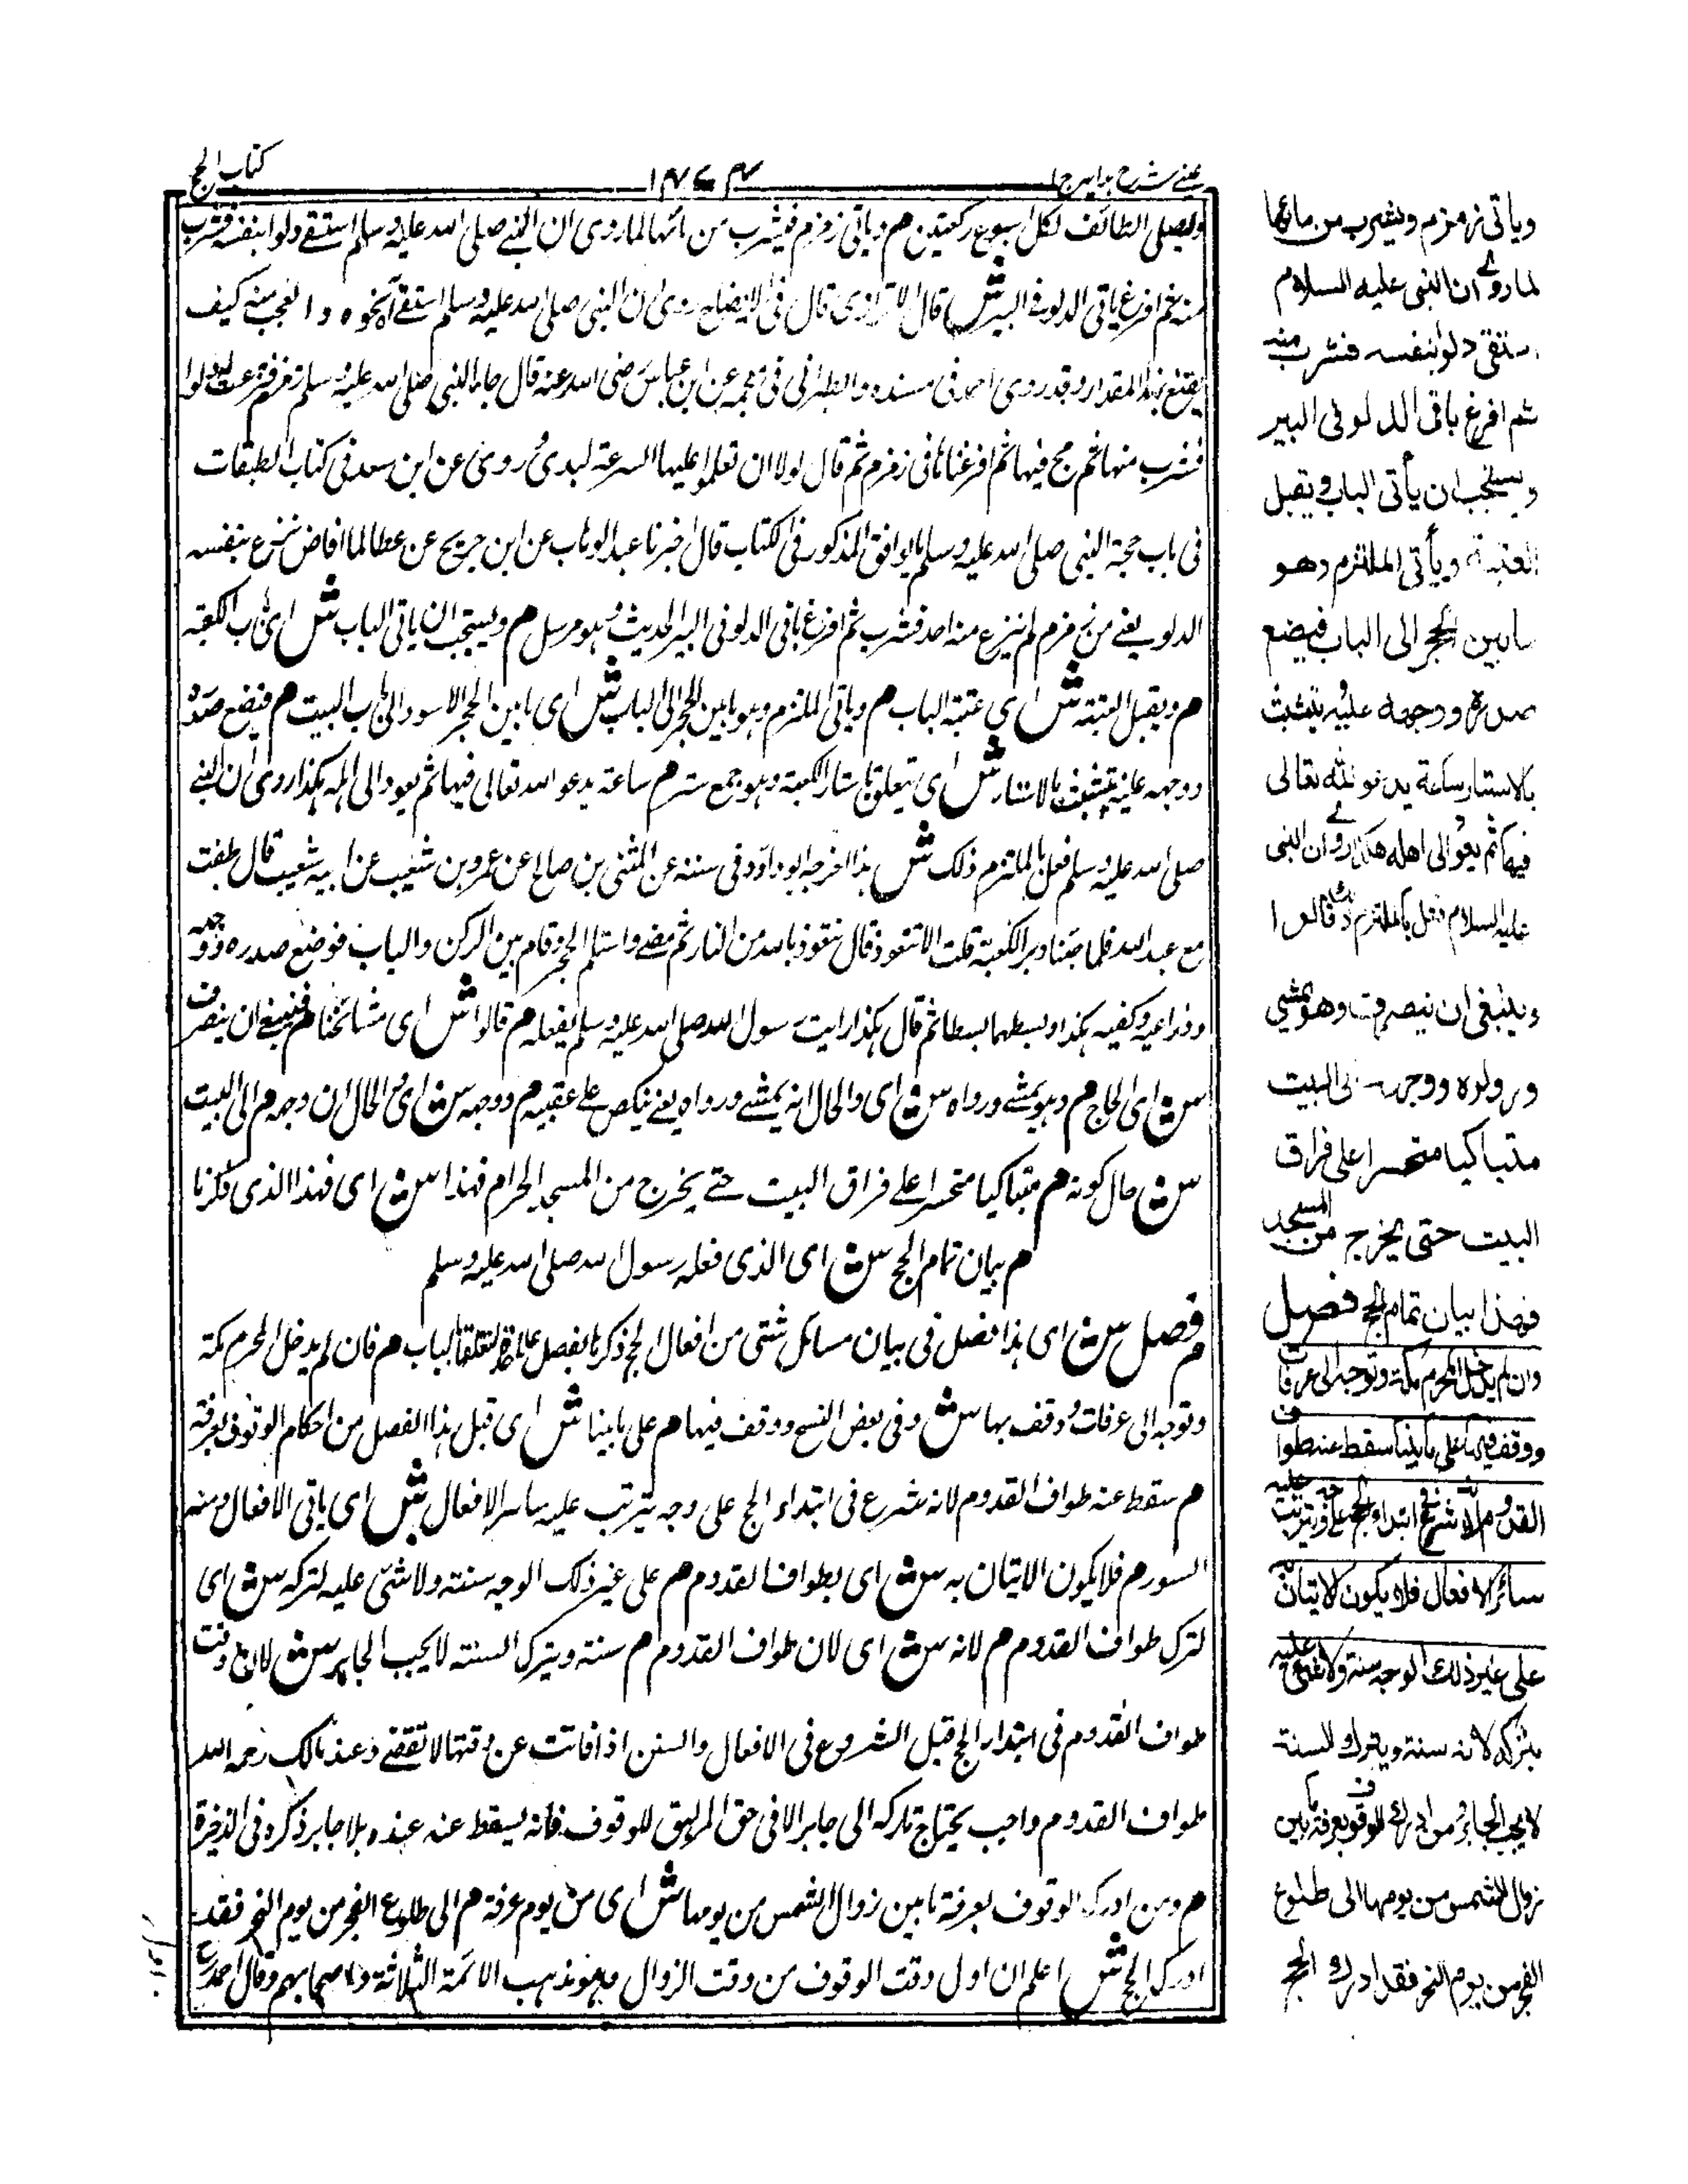 عينى شرح هدايه ج ١
١٤٧٤
كتاب الحج
ويصلى الطائف لكل اسبوع ركعتين م وياتى زمزم فيشرب من مائها لما روى ان النبى صلى الله عليه وسلم استقى دلوا بنفسه فشرب
منه ثم افرغ باقى الدلو فى البير ش قال الاترازى قال فى الايضاح روى ان النبى صلى الله عليه وسلم استقى آخره والعجب منه كيف
يقنع بهذا المقدار وقد روى احمد فى مسنده والطبرانى فى معجمه عن ابن عباس رضى الله عنه قال جاء النبى صلى الله عليه وسلم زمزم فنزعت له دلوا
فشرب منها ثم مج فيها ثم افرغناها فى زمزم ثم قال لولا ان تغلبوا عليها لنزعت بيدى روى عن ابن سعد فى كتاب الطبقات
فى باب حجة النبى صلى الله عليه وسلم ما يوافق المذكور فى الكتاب قال اخبرنا عبد الوهاب عن ابن جريج عن عطا لما افاض نزع بنفسه
الدلو يعنى من زمزم لم ينزع منه احد فشرب ثم افرغ باقى الدلو فى البير الحديث وهو مرسل م ويستحب ان ياتى الباب ش اى باب الكعبة
م ويقبل العتبة ش اى عتبة الباب م وياتى الملتزم وهو ما بين الحجر الى الباب ش اى ما بين الحجر الاسود الى باب البيت م فيضع صدره
ووجهه عليه ويتشبث بالاستار ش اى يتعلق باستار الكعبة وهو جمع ستر م ساعة يدعو الله تعالى فيها ثم يعود الى اهله هكذا روى ان النبى
صلى الله عليه وسلم فعل بالملتزم ذلك ش هذا اخرجه ابو داود فى سننه عن المثنى بن صالح عن عمرو بن شعيب عن ابيه شعيب قال طفت
مع عبد الله فلما جئنا دبر الكعبة قلت الا تتعوذ قال نتعوذ بالله من النار ثم مضى واستلم الحجر وقام بين الركن والباب فوضع صدره ووجهه
وذراعيه وكفيه هكذا وبسطهما بسطا ثم قال هكذا رايت رسول الله صلى الله عليه وسلم يفعله م قالوا ش اى مشائخنا م فينبغى ان ينصرف
ش اى الحاج م وهو يمشى وراه ش اى والحال انه يمشى ورواه يعنى ينكص على عقبيه م ووجهه ش اى والحال ان وجهه م الى البيت
ش حال كونه م متباكيا متحسرا على فراق البيت حتى يخرج من المسجد الحرام فهذا ش اى فهذا الذى ذكرنا
م بيان تمام الحج ش اى الذى فعله رسول الله صلى الله عليه وسلم
م فصل ش اى هذا فصل فى بيان مسائل شتى من افعال الحج ذكرها بفصل على حدة لتعلقها بالباب م فان لم يدخل المحرم مكة
وتوجه الى عرفات ووقف بها ش وفى بعض النسخ ووقف فيها م على ما بينا ش اى قبل هذا الفصل من احكام الوقوف بعرفة
م سقط عنه طواف القدوم لانه شرع فى ابتداء الحج على وجه يترتب عليه سائر الافعال ش اى باقى الافعال ومنه
السور م فلا يكون الاتيان به ش اى بطواف القدوم م على غير ذلك الوجه سنة ولا شئ عليه لتركه ش اى
لترك طواف القدوم م لانه ش اى لان طواف القدوم م سنة وبترك السنة لا يجب الجابر ش لان وقت
طواف القدوم فى ابتداء الحج قبل الشروع فى الافعال والسنن اذا فاتت عن وقتها لا تقضى وعند مالك رحمه الله
طواف القدوم واجب يحتاج تاركه الى جابر الا فى حق المراهق للوقوف فانه يسقط عنه عنده بلا جابر ذكره فى الذخيرة
م ومن ادرك الوقوف بعرفة ما بين زوال الشمس من يومها ش اى من يوم عرفة م الى طلوع الفجر من يوم النحر فقد
ادرك الحج ش اعلم ان اول وقت الوقوف من وقت الزوال وهو مذهب الائمة الثلاثة واصحابهم وقال احمد
وياتى زمزم ويشرب من مائها
لما روى ان النبى عليه السلام
استقى دلوا بنفسه فشرب منه
ثم افرغ باقى الدلو فى البير
ويستحب ان يأتى الباب ويقبل
العتبة ويأتى الملتزم وهو
ما بين الحجر الى الباب فيضع
صدره ووجهه عليه ويتشبث
بالاستار ساعة يدعو الله تعالى
فيها ثم يعود الى اهله هكذا روى ان النبى
عليه السلام فعل بالملتزم ذلك قالوا
وينبغى ان ينصرف وهو يمشى
وراءه ووجهه الى البيت
متباكيا متحسرا على فراق
البيت حتى يخرج من المسجد
فهذا بيان تمام الحج فصل
وان لم يدخل المحرم مكة وتوجه الى عرفات
ووقف فيها على ما بينا سقط عنه طواف
القدوم لانه شرع فى ابتداء الحج على وجه يترتب عليه
سائر الافعال فلا يكون الاتيان به
على غير ذلك الوجه سنة ولا شئ عليه
بتركه لانه سنة وبترك السنة
لا يجب الجابر ومن ادرك الوقوف بعرفة ما بين
زوال الشمس من يومها الى طلوع
الفجر من يوم النحر فقد ادرك الحج